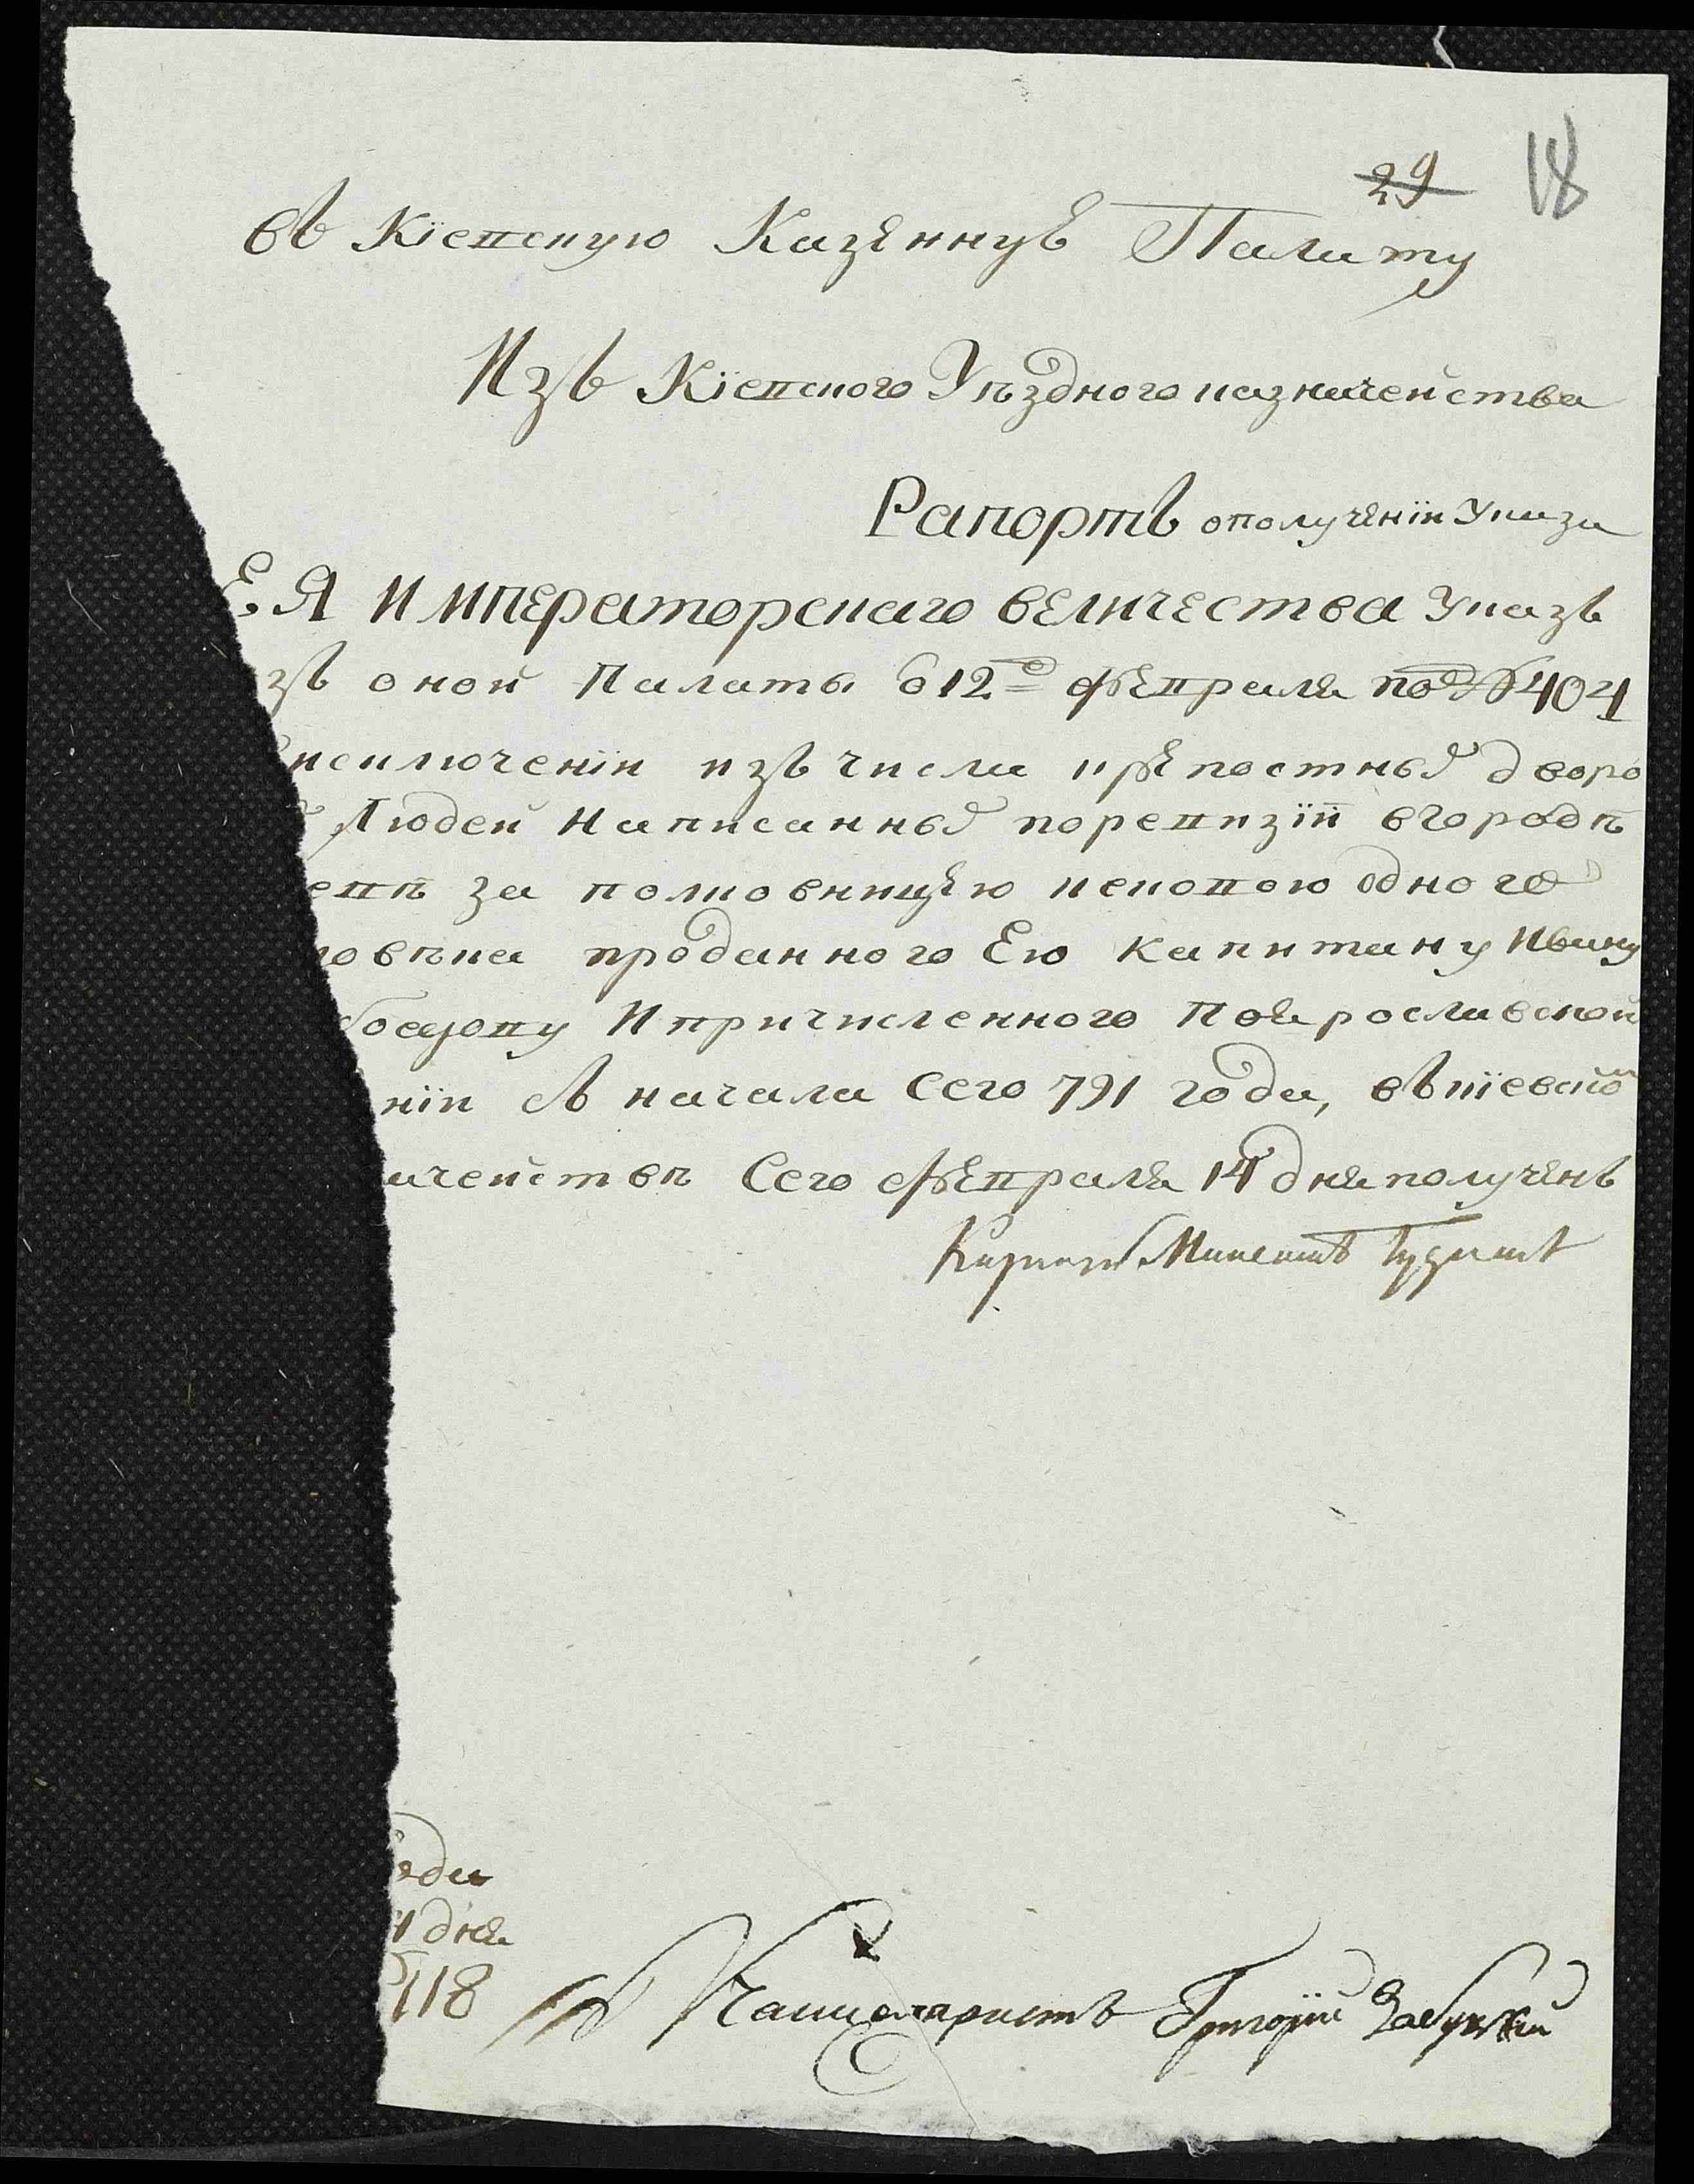 29 18
въ Кіевскую Казеннуе Палату
Изъ Кіевского Уѣздного казначейства
Рапортъ ополученіи Указа
Е. Я ИМПЕРАТОРСКАГО ВЕЛИЧЕСТВА Указъ
зъ оной Палаты о 12го февраля под № 404
исключеніи изъ числа крепостных дворо
Людей написанных поревизіи вгородѣ
евѣ за полковницею одного
ловѣка проданного Ею капитану Ивану
Ипричисленного поярославской
ніи съ начала сего 791 года, въкіевско
ачействѣ Сего февраля 14 дня получень
года
дня
118
Канцеляристъ Григорій